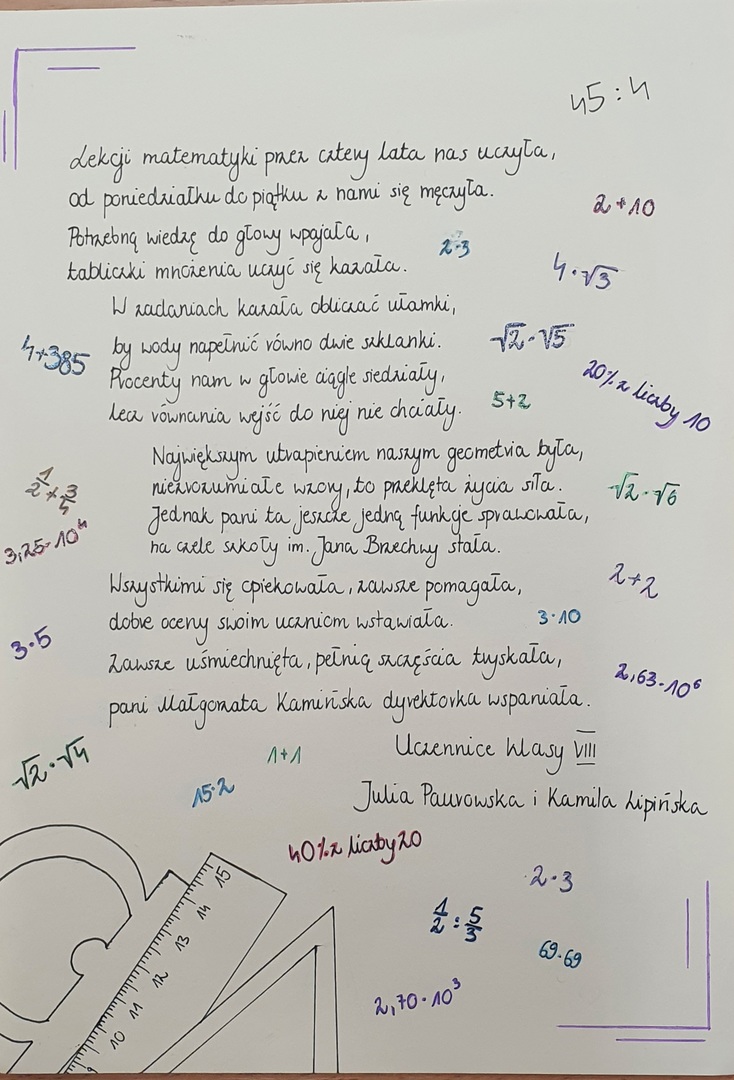 45 : 4
Lekcji matematyki przez cztery lata nas uczyła,
od poniedziałku do piątku z nami się męczyła.
2 + 10
Potrzebną wiedzę do głowy wpajała,
2·3
tabliczki mnożenia uczyć się kazała.
4·√3
W zadaniach kazała obliczać ułamki,
4+385
by wody napełnić równo dwie szklanki.
√2·√5
Procenty nam w głowie ciągle siedziały,
20% z liczby 10
lecz równania wejść do niej nie chciały.
5+2
Największym utrapieniem naszym geometria była,
1/2 + 3/4
niezrozumiałe wzory, to przeklęta życia siła.
√2·√6
Jednak pani ta jeszcze jedną funkcje sprawowała,
3,25·10⁴
na czele szkoły im. Jana Brzechwy stała.
Wszystkimi się opiekowała, zawsze pomagała,
2+2
dobre oceny swoim uczniom wstawiała.
3·10
3·5
Zawsze uśmiechnięta, pełnią szczęścia tryskała,
2,63·10⁶
pani Małgorzata Kamińska dyrektorka wspaniała.
Uczennice klasy VIII
√2·√4
1+1
15·2
Julia Paurowska i Kamila Lipińska
40% z liczby 20
2·3
1/2 : 5/3
69·69
2,70·10³
15
14
13
12
11
10
9